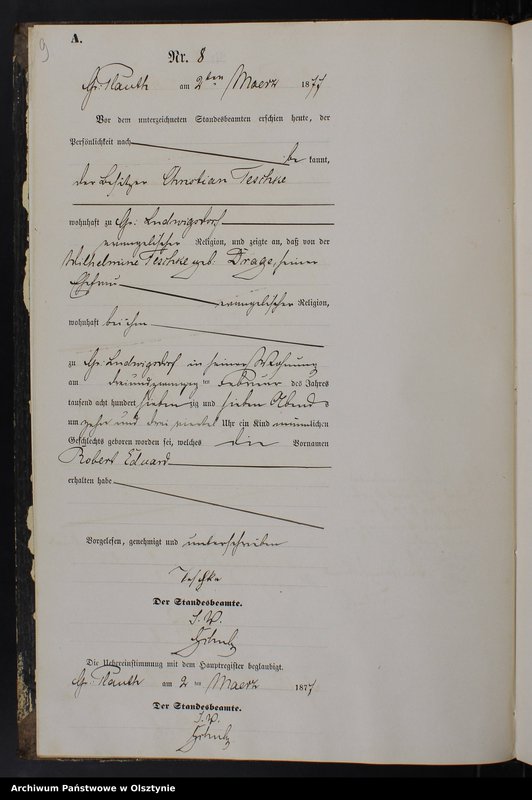 9
A.
Nr. 8
Gr. Plauth am 2ten Maerz 1877
Vor dem unterzeichneten Standesbeamten erschien heute, der
Persönlichkeit nach
be kannt,
der Besitzer Christian Teschke
wohnhaft zu Gr. Ludwigsdorf
evangelischer Religion, und zeigte an, daß von der
Wilhelmine Teschke geb. Drage, seiner
Ehefrau
evangelischer Religion,
wohnhaft bei ihm
zu Gr. Ludwigsdorf in seiner Wohnung
am dreiundzwanzigsten Februar des Jahres
tausend acht hundert sieben zig und sieben Abends
um zehn und drei viertel Uhr ein Kind männlichen
Geschlechts geboren worden sei, welches die Vornamen
Robert Eduard
erhalten habe
Vorgelesen, genehmigt und unterschrieben
Teschke
Der Standesbeamte.
I. V.
Die Uebereinstimmung mit dem Hauptregister beglaubigt.
Gr. Plauth am 2 ten Maerz 1877
Der Standesbeamte.
I. V.
Archiwum Państwowe w Olsztynie